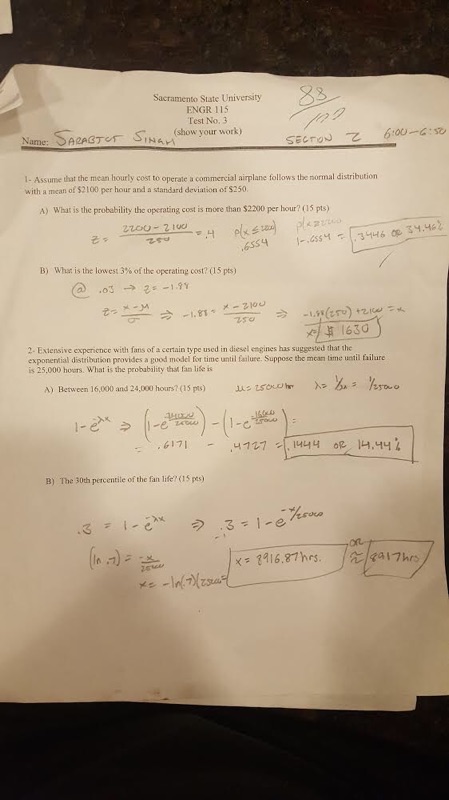 Sacramento State University
ENGR 115
Test No. 3
(show your work)
88
/100
Name: SARABJOT SINGH
SECTION 2 6:00-6:50
1- Assume that the mean hourly cost to operate a commercial airplane follows the normal distribution
with a mean of $2100 per hour and a standard deviation of $250.
A) What is the probability the operating cost is more than $2200 per hour? (15 pts)
z = 2200-2100 / 250 = .4 p(x ≤ 2200) .6554 1-.6554 = .3446 OR 34.46%
B) What is the lowest 3% of the operating cost? (15 pts)
@ .03 → z = -1.88
z = x-μ / σ ⇒ -1.88 = x-2100 / 250 ⇒ -1.88(250)+2100 = x
x = $1630
2- Extensive experience with fans of a certain type used in diesel engines has suggested that the
exponential distribution provides a good model for time until failure. Suppose the mean time until failure
is 25,000 hours. What is the probability that fan life is
A) Between 16,000 and 24,000 hours? (15 pts) μ = 25000 hr λ = 1/μ = 1/25000
1-e^-λx ⇒ (1-e^-24000/25000) - (1-e^-16000/25000) =
= .6171 - .4727 = .1444 OR 14.44%
B) The 30th percentile of the fan life? (15 pts)
.3 = 1-e^-λx ⇒ .3 = 1-e^-x/25000
-1
(ln .7) = -x / 25000 x = 8916.87 hrs. OR ≈ 8917 hrs
x = -ln(.7)(25000)=